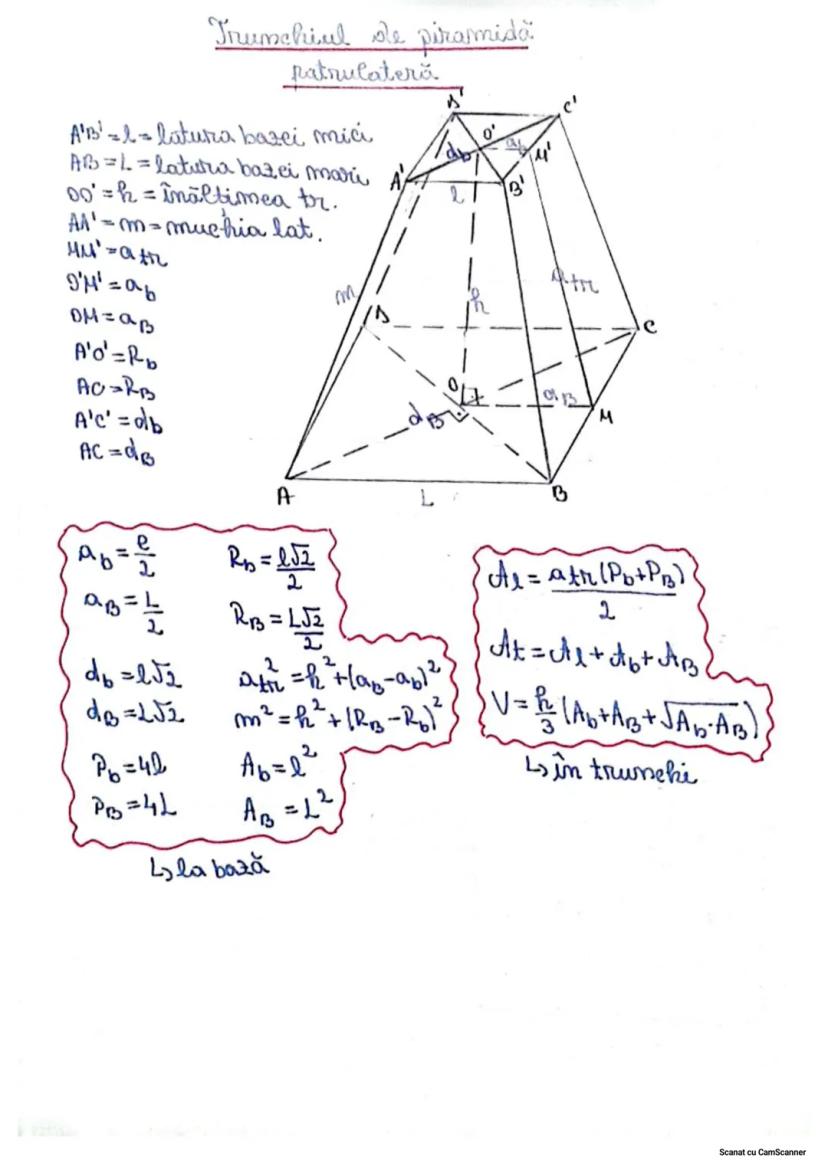 Trunchiul de piramidă
patrulateră
A'B' = l = latura bazei mici
AB = L = latura bazei mari
OO' = h = înălțimea tr.
AA' = m = muchia lat.
MM' = a tr
O'M' = a b
OM = a B
A'O' = R b
AO = R B
A'C' = d b
AC = d B
D' C'
O' a b M'
d b
A' l B'
m h a tr
D C
O a B M
d B
A L B
a b = l/2 R b = l√2/2
a B = L/2 R B = L√2/2
d b = l√2 a tr² = h² + (a B - a b)²
d B = L√2 m² = h² + (R B - R b)²
P b = 4l A b = l²
P B = 4L A B = L²
↳ la bază
A l = a tr (P b + P B)/2
A t = A l + A b + A B
V = h/3 (A b + A B + √A b · A B)
↳ în trunchi
Scanat cu CamScanner